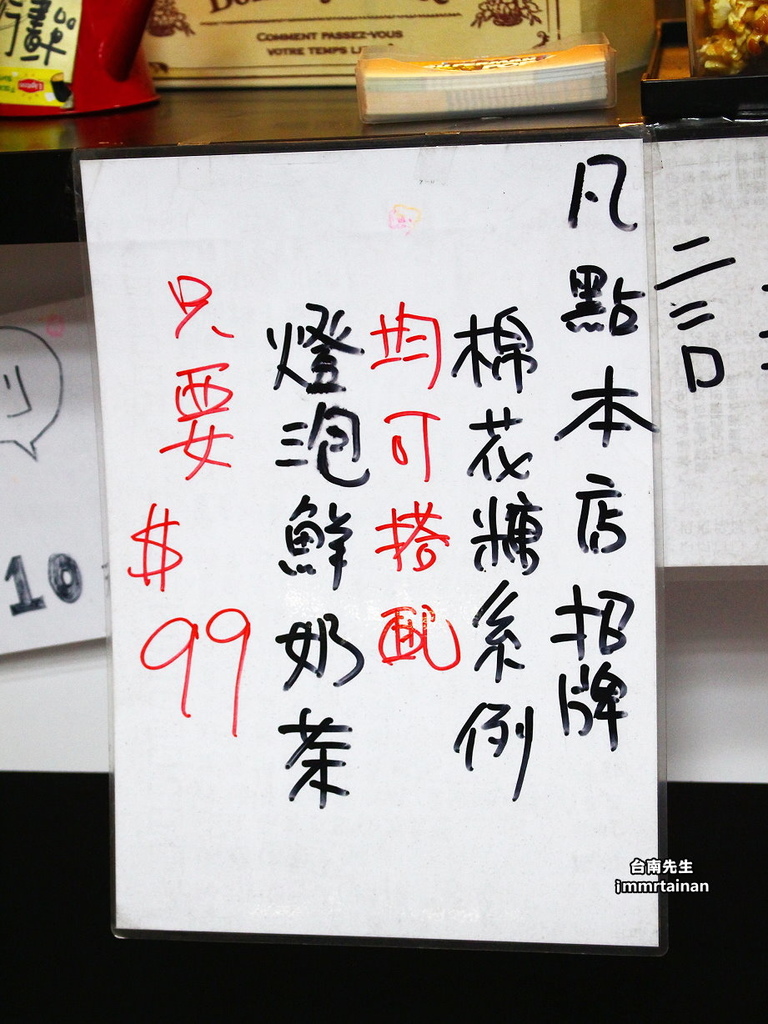 凡點本店招牌
棉花糖系例
均可搭配
燈泡鮮奶茶
只要
$99
COMMENT PASSEZ-VOUS
VOTRE TEMPS
言
10
Lipton
台南先生
immrtainan